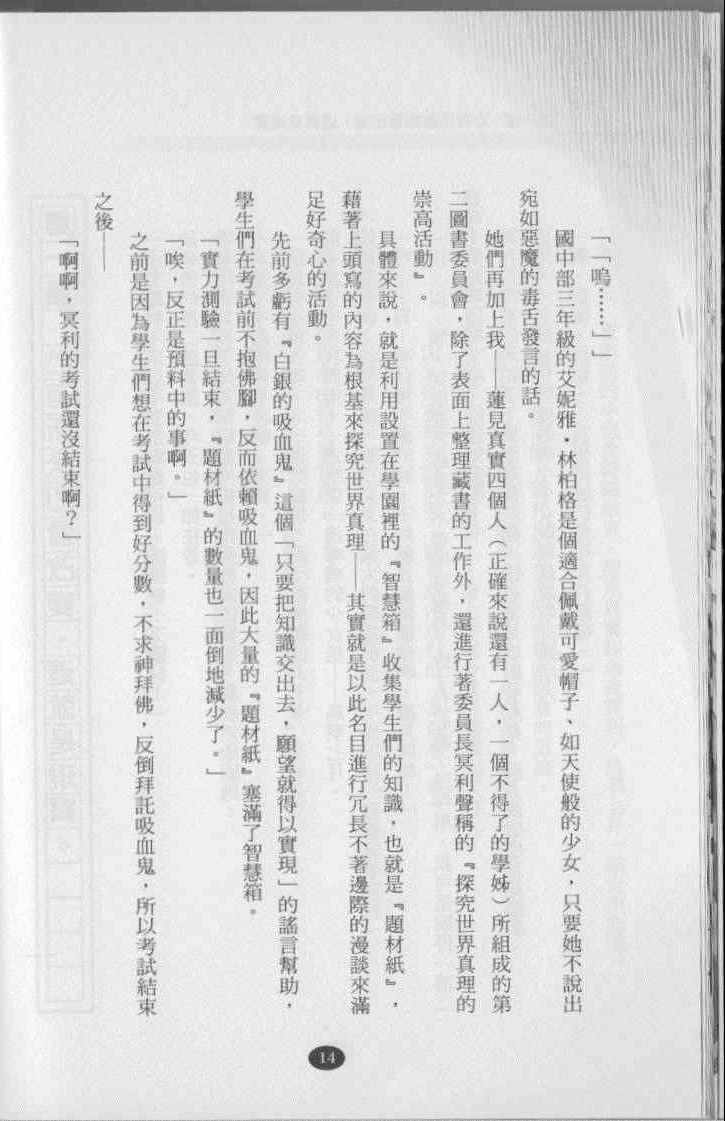 「「嗚……」」
國中部三年級的艾妮雅・林柏格是個適合佩戴可愛帽子、如天使般的少女，只要她不說出
宛如惡魔的毒舌發言的話。
她們再加上我——蓮見真實四個人（正確來說還有一人，一個不得了的學姊）所組成的第
二圖書委員會，除了表面上整理藏書的工作外，還進行著委員長冥利聲稱的『探究世界真理的
崇高活動』。
具體來說，就是利用設置在學園裡的『智慧箱』收集學生們的知識，也就是『題材紙』，
藉著上頭寫的內容為根基來探究世界真理——其實就是以此名目進行冗長不著邊際的漫談來滿
足好奇心的活動。
先前多虧有『白銀的吸血鬼』這個「只要把知識交出去，願望就得以實現」的謠言幫助，
學生們在考試前不抱佛腳，反而依賴吸血鬼，因此大量的『題材紙』塞滿了智慧箱。
「實力測驗一旦結束，『題材紙』的數量也一面倒地減少了。」
「唉，反正是預料中的事啊。」
之前是因為學生們想在考試中得到好分數，不求神拜佛，反倒拜託吸血鬼，所以考試結束
之後——
「啊啊，冥利的考試還沒結束啊？」
14